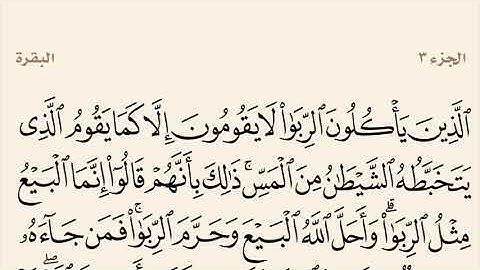 الجزء ٣
البقرة
ٱلَّذِينَ يَأۡكُلُونَ ٱلرِّبَوٰاْ لَا يَقُومُونَ إِلَّا كَمَا يَقُومُ ٱلَّذِى
يَتَخَبَّطُهُ ٱلشَّيۡطَٰنُ مِنَ ٱلۡمَسِّۚ ذَٰلِكَ بِأَنَّهُمۡ قَالُوٓاْ إِنَّمَا ٱلۡبَيۡعُ
مِثۡلُ ٱلرِّبَوٰاْۗ وَأَحَلَّ ٱللَّهُ ٱلۡبَيۡعَ وَحَرَّمَ ٱلرِّبَوٰاْۚ فَمَن جَآءَهُۥ